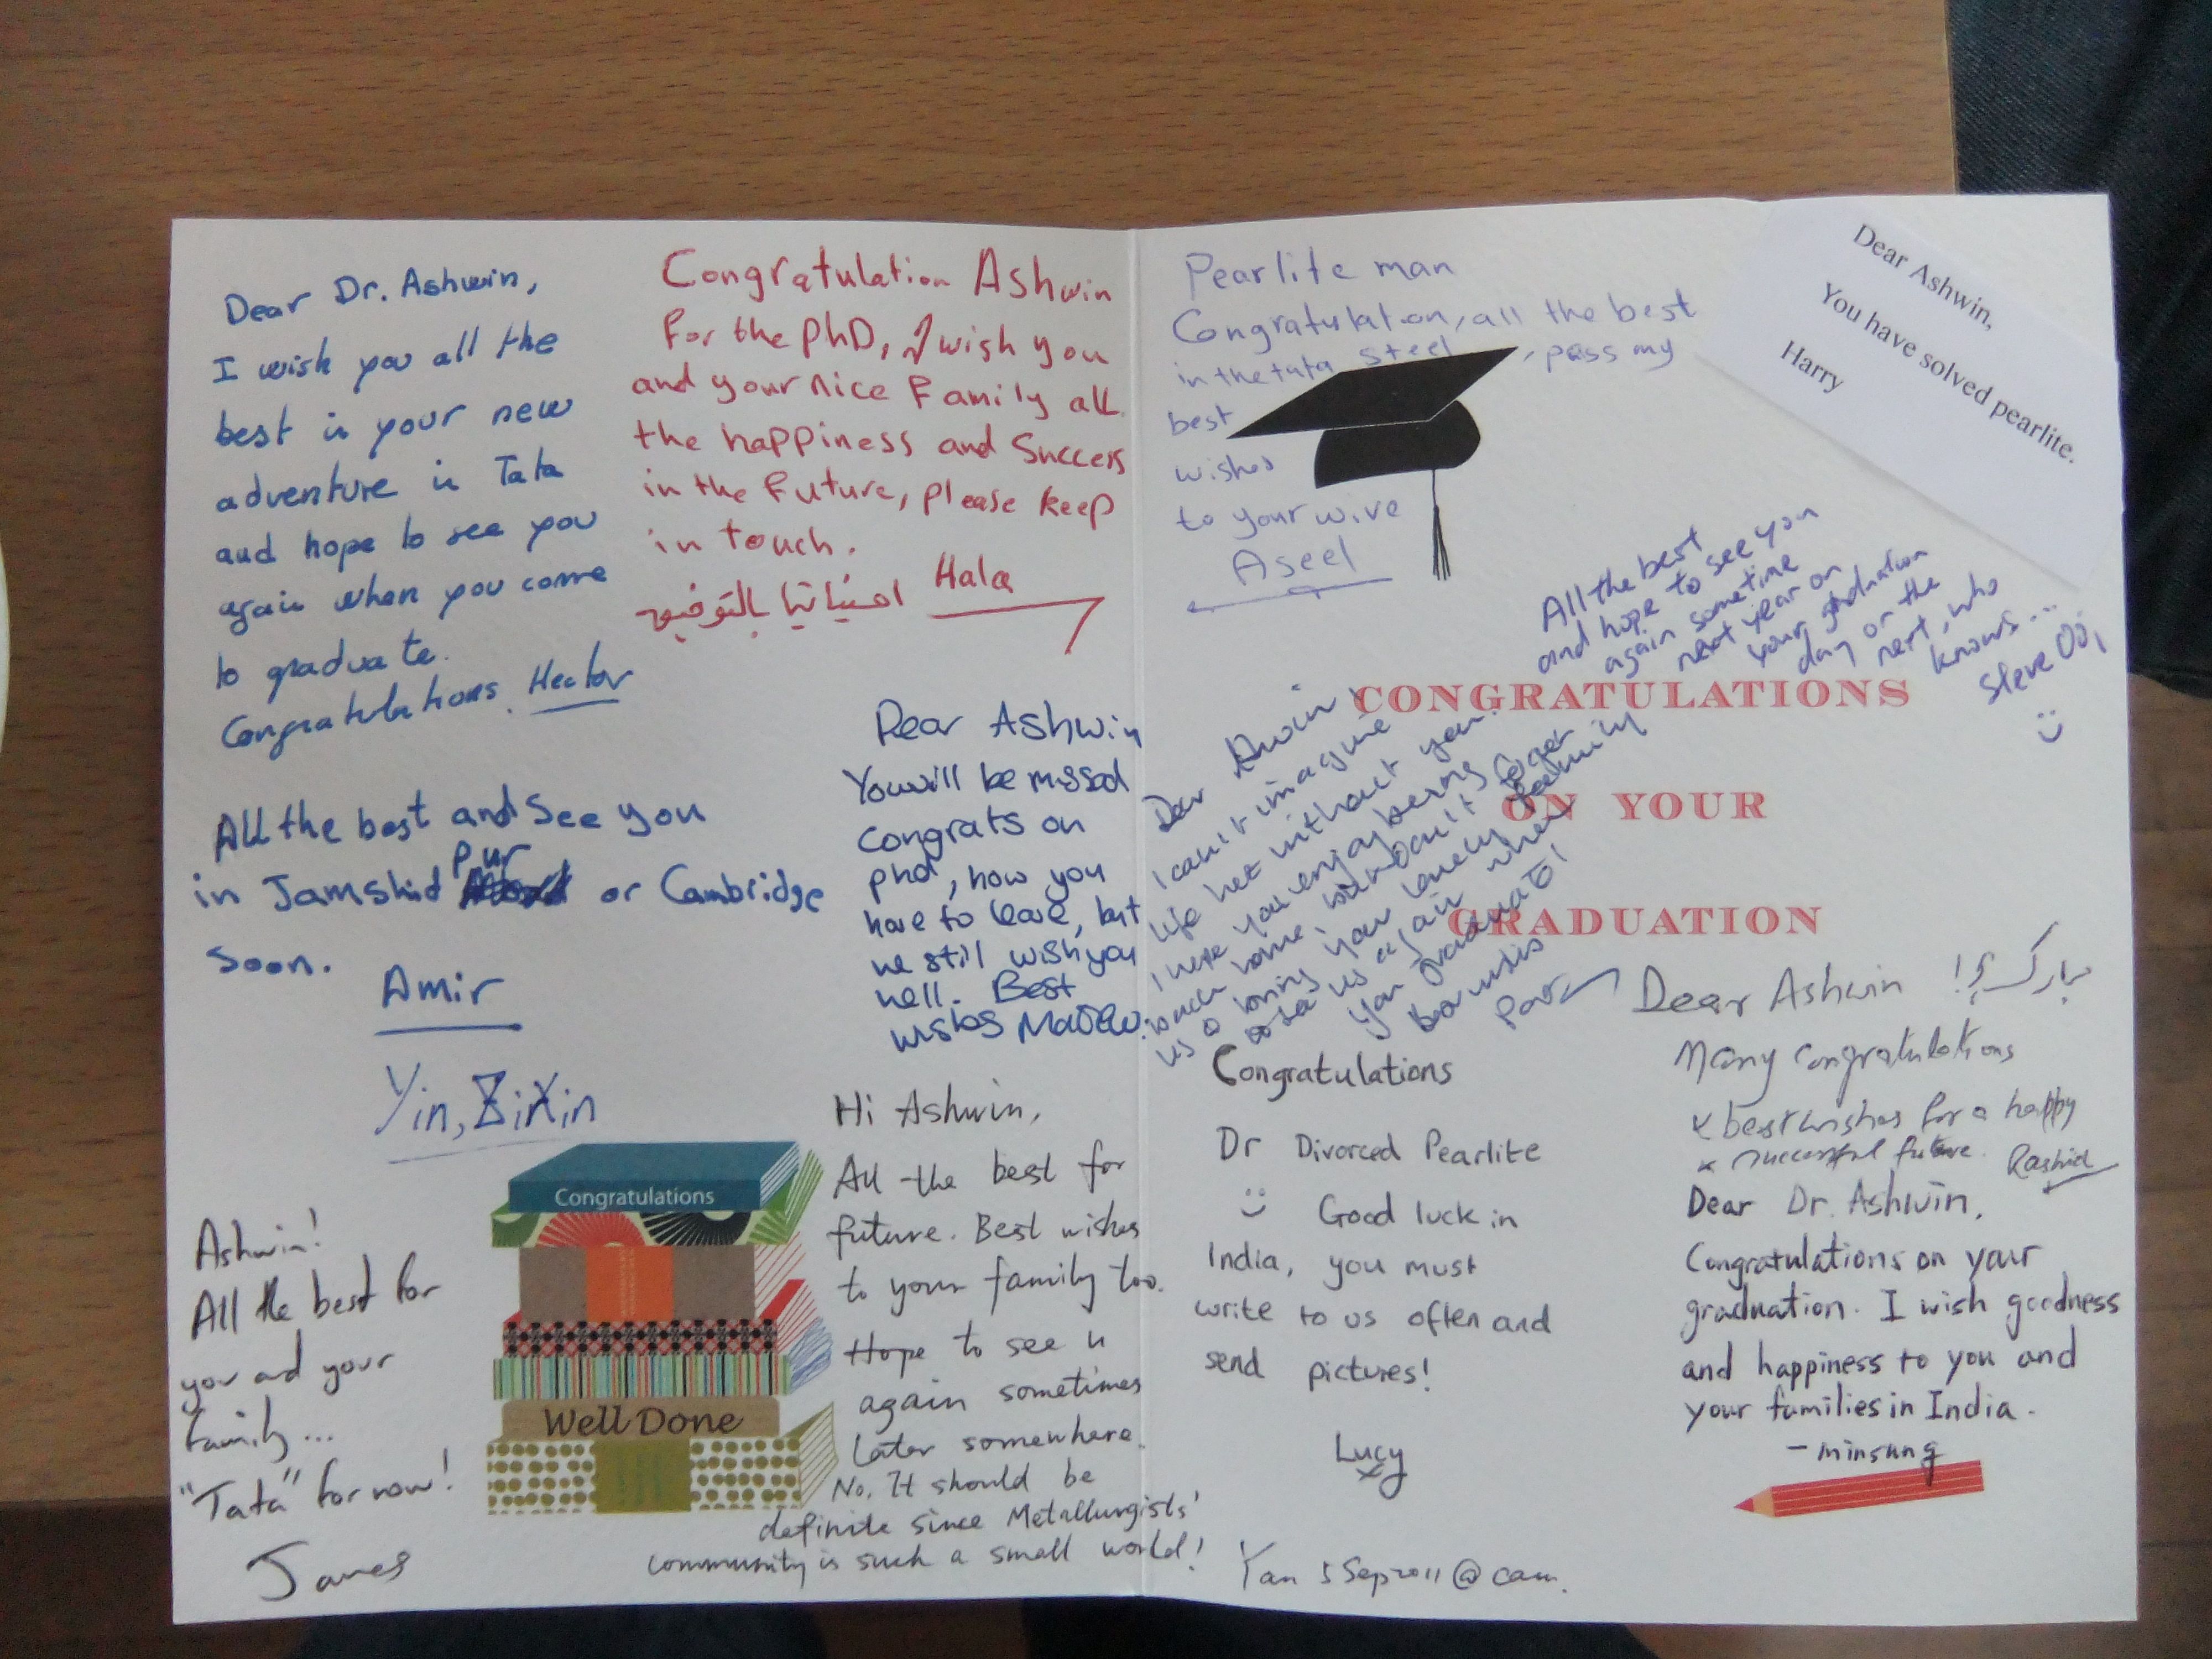 Dear Dr. Ashwin,
I wish you all the
best in your new
adventure in Tata
and hope to see you
again when you come
to graduate.
Congratulations. Hector
Congratulation Ashwin
For the PhD, I wish you
and your nice Family all
the happiness and Success
in the Future, please keep
in touch.
امنياتنا بالتوفيق Hala
All the best and See you
in Jamshidpur or Cambridge
soon.
Amir
Yin, ZiXin
Dear Ashwin
You will be missed
congrats on
phd, how you
have to leave, but
we still wish you
well. Best
wishes Mathew.
Ashwin!
All the best for
you and your
family...
"Tata" for now!
James
Congratulations
Well Done
Hi Ashwin,
All the best for
future. Best wishes
to your family too.
Hope to see u
again sometimes
later somewhere.
No. It should be
definite since Metallurgists'
community is such a small world!
Yan 5 Sep 2011 @ cam.
Pearlite man
Congratulation, all the best
in the tata steel, pass my
best
wishes
to your wive
Aseel
Dear Ashwin,
You have solved pearlite.
Harry
All the best
and hope to see you
again sometime
next year on
your graduation
day or the
next, who
knows...
Steve Ooi
:)
CONGRATULATIONS
ON YOUR
GRADUATION
Dear
I can't imagine
life without you.
I hope you enjoy being
back home. Don't forget
us & bring your lovely family
to see us again when
you graduate!
Best wishes
Congratulations
Dr Divorced Pearlite
:) Good luck in
India, you must
write to us often and
send pictures!
Lucy
x
Dear Ashwin !مبارک
Many congratulations
& best wishes for a happy
& successful future. Rashid
Dear Dr. Ashwin,
Congratulations on your
graduation. I wish goodness
and happiness to you and
your families in India.
- minsung